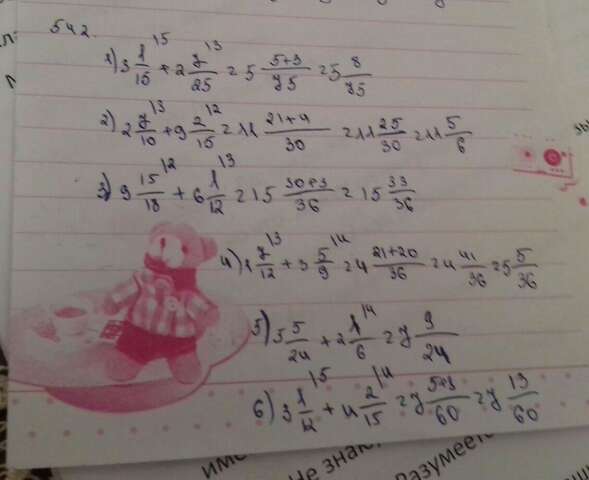 542.
1) 3 1/15 \5 + 2 1/25 \3 = 5 5+3/75 = 5 8/75
2) 2 7/10 \3 + 9 2/15 \2 = 11 21+4/30 = 11 25/30 = 11 5/6
3) 9 15/18 \2 + 6 1/12 \3 = 15 30+3/36 = 15 33/36
4) 1 7/12 \3 + 3 5/9 \4 = 4 21+20/36 = 4 41/36 = 5 5/36
5) 5 5/24 + 2 1/6 \4 = 7 9/24
6) 3 1/12 \5 + 4 2/15 \4 = 7 5+8/60 = 7 13/60
име
Не знаю
Разумеет